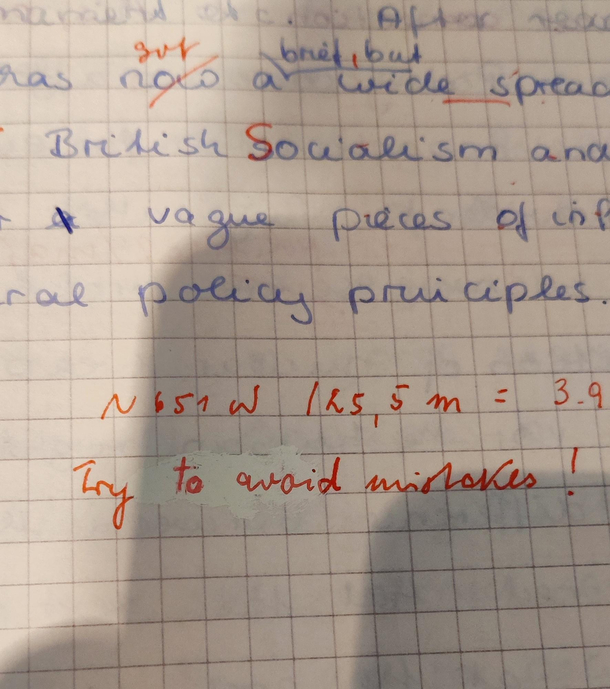 After
got brief, but
has now a wide spread
British Socialism and
vague pieces of inf
ral policy principles.
N 651 W 125,5 m = 3.9
Try to avoid mistakes!